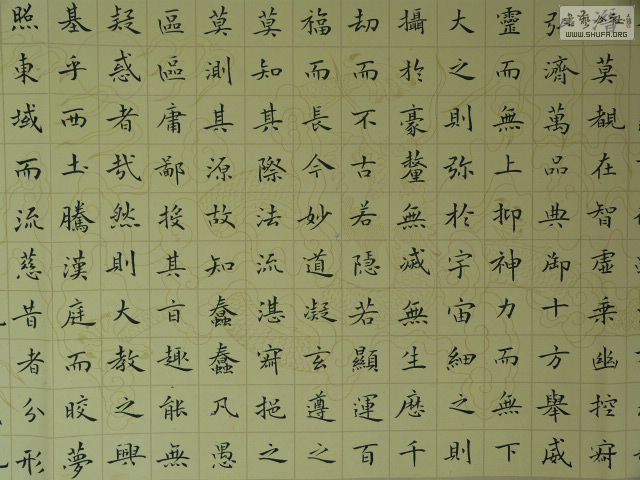 莫覩在智虛乘幽控寂
弘濟萬品典御十方舉威
靈而無上抑神力而無下
大之則弥於宇宙細之則
攝於豪釐無滅無生歷千
劫而不古若隱若顯運百
福而長今妙道凝玄遵之
莫知其際法流湛寂挹之
莫測其源故知蠢蠢凡愚
區區庸鄙投其旨趣能無
疑惑者哉然則大教之興
基乎西土騰漢庭而皎夢
照東域而流慈昔者分形
WWW.SHUFA.ORG